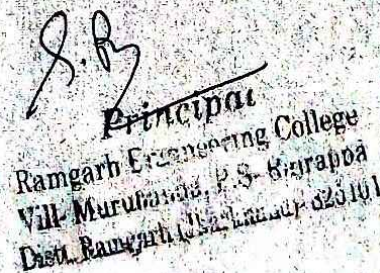 S.B
Principal
Ramgarh Engineering College
Vill- Murubanda, P.S- Rajrappa
Distt. Ramgarh (Jharkhand)- 825101